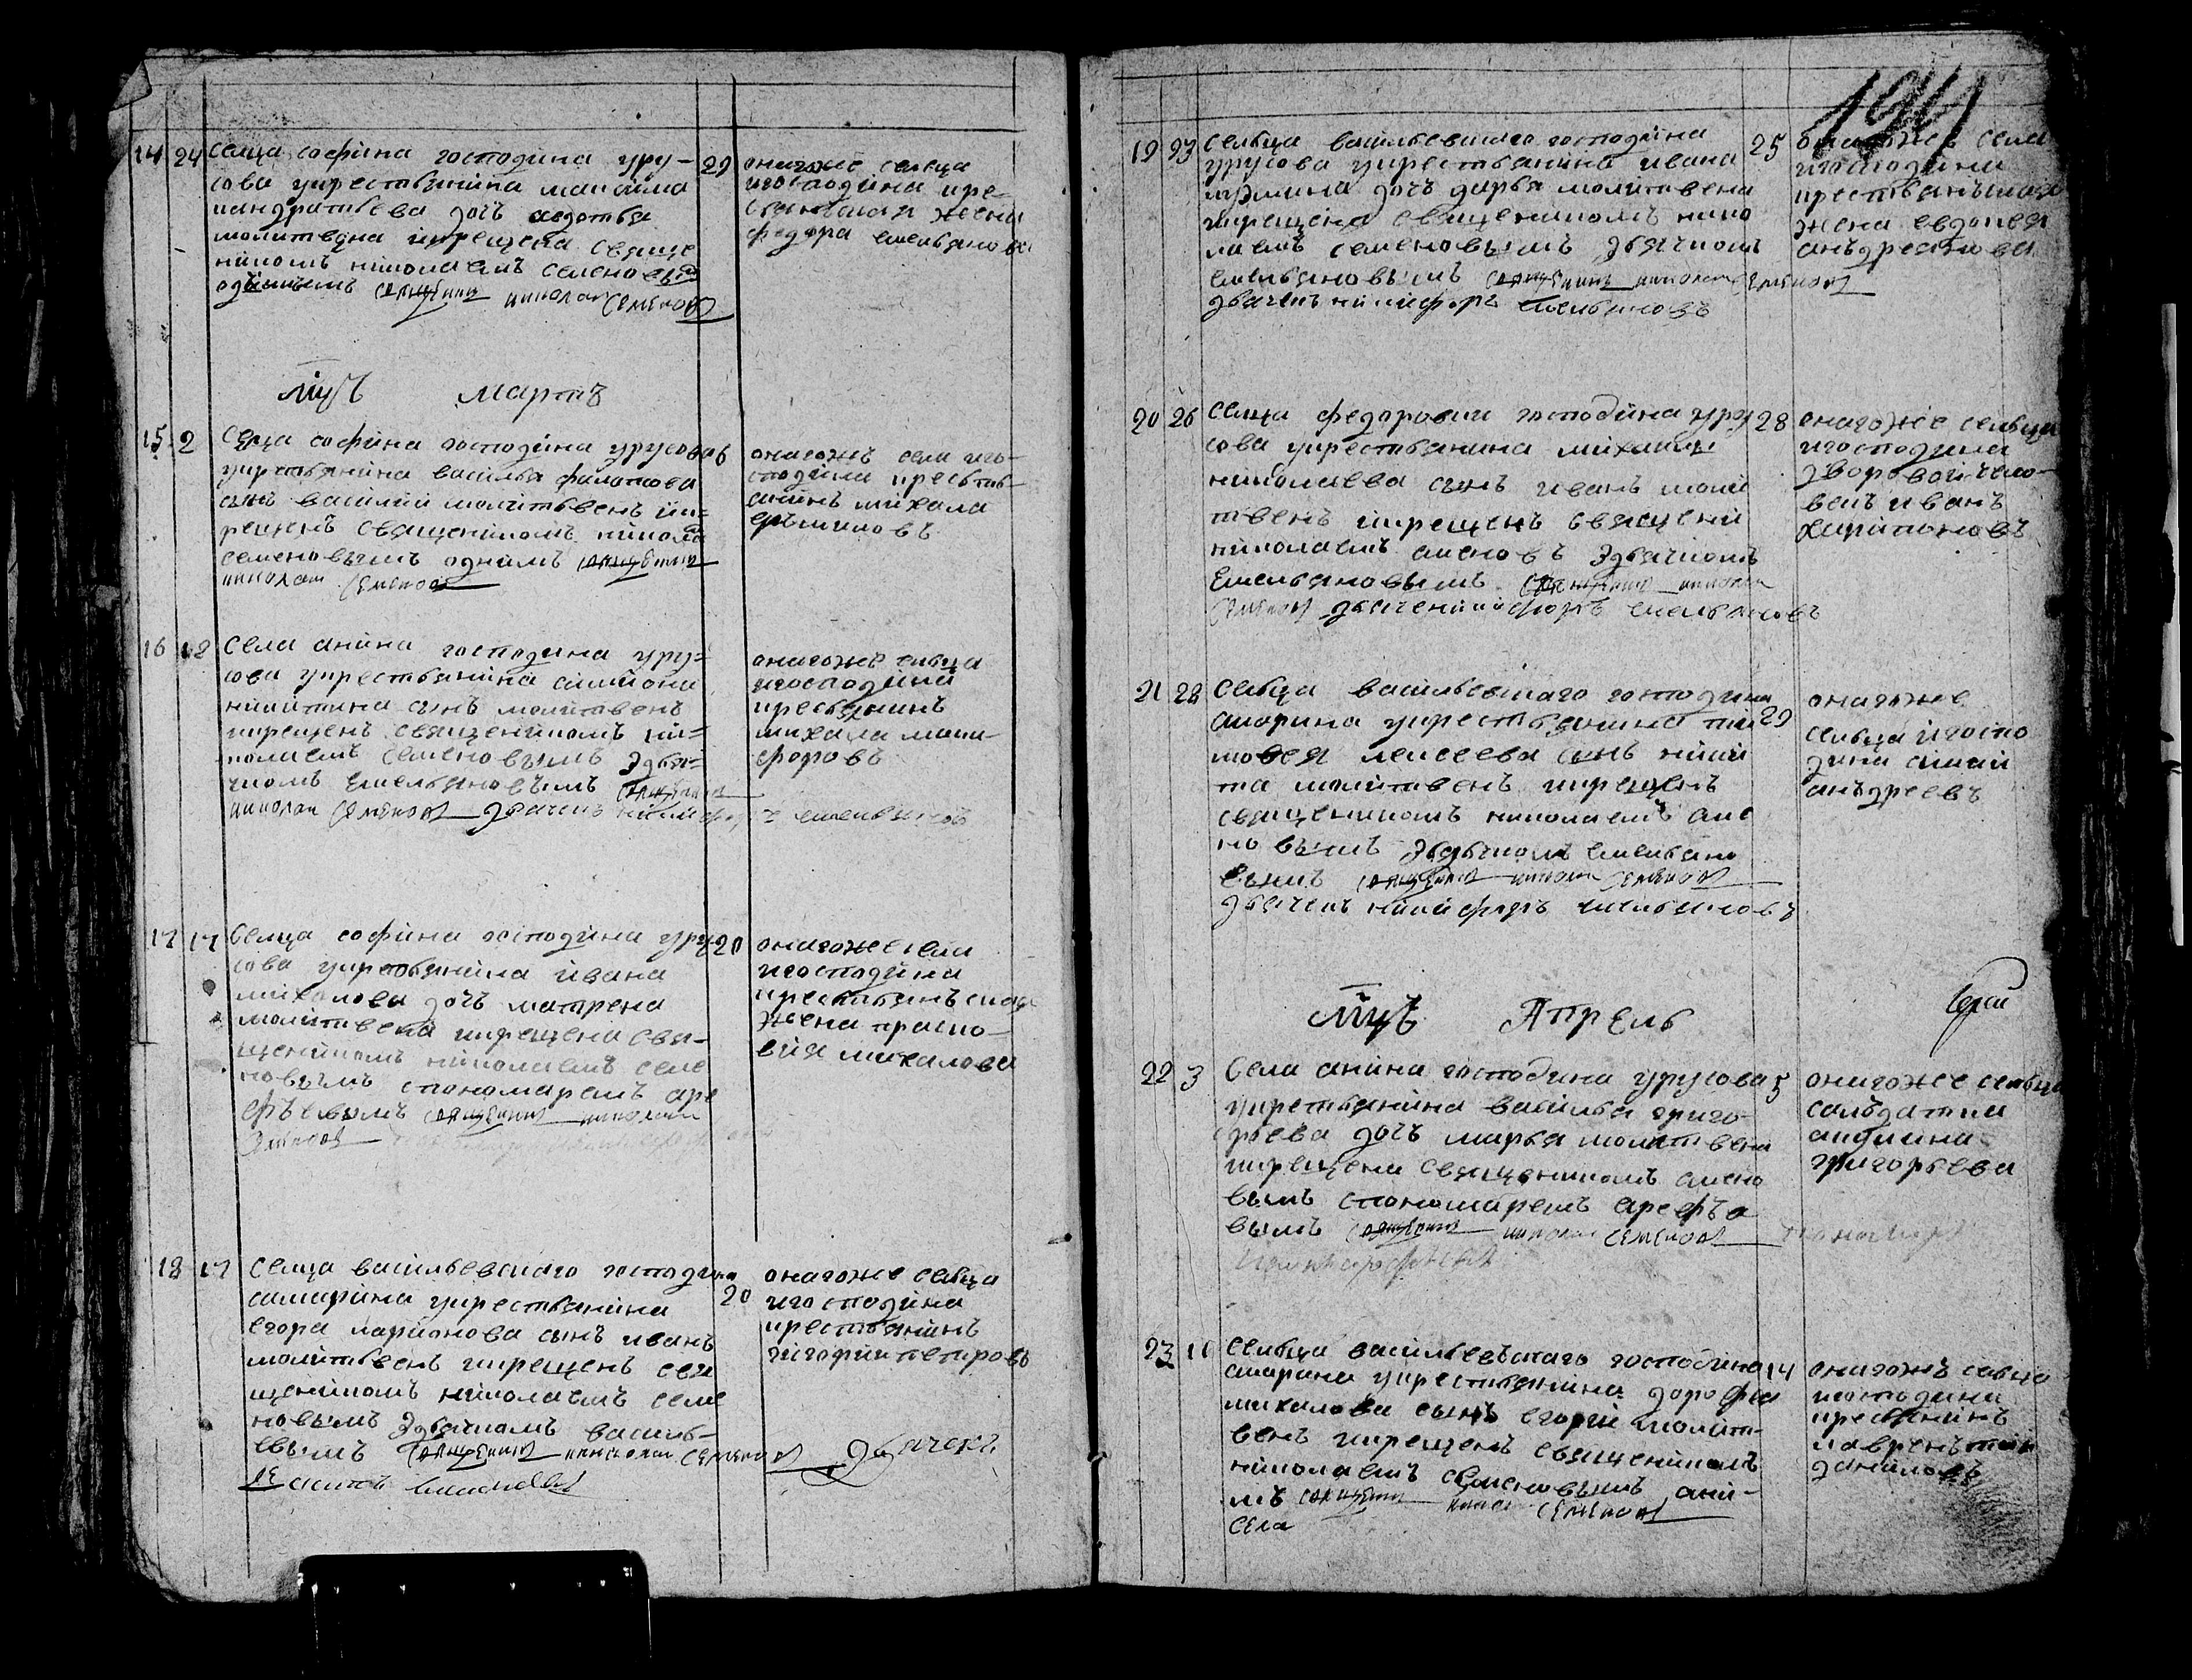 14 24 селца софина господина уру-
сова укрестьянина максима
кандратьева дочь авдотья
молитвена икрещена свяще
никомъ николаемъ семеновым
однимъ священникъ николаи семеновъ
29 онагоже селца
игосподина кре-
стьянская жена
федора емельянова
мцъ мартъ
15 2 селца софина господина урусова
укрестьянина василья филатова
сынъ василий молитвенъ ик-
рещенъ священикомъ никола
семеновымъ однимъ священникъ
николаи семеновъ
6 онагожъ села иго-
сподина крестья-
нинъ михаила
16 12 села анина господина уру=
сова укрестьянина симиона
никитина сынъ молитвенъ
икрещенъ священикомъ ни=
колаемъ семеновымъ здья=
чкомъ емельяновымъ священникъ
николаи семеновъ дьячекъ никифор
ъ емельяновъ
онагоже селца
игосподина
крестьянинъ
михаила ники-
форовъ
17 17 селца софина господина уру
сова укрестьянина ивана
михалова дочь матрена
молитвена икрещена свя-
щеникомъ николаемъ семе
новымъ спономаремъ аре
фьевымъ священникъ николаи
семеновъ
20 онагоже села
игосподина
крестьянъская
жена праско-
вия михалова
18 17 селца васильевскаго господина
самарина укрестьянина
егора ларионова сынъ иванъ
молитвенъ икрещенъ свя
щеникомъ николаемъ семе
новымъ здьячкомъ василь-
евымъ священникъ николаи семеновъ дьячекъ
20 онагоже селца
игосподина
крестьянинъ
григории петровъ
191
19 23 сельца васильевскаго господина
урусова укрестьянина ивана
дочь дарья молитвена
икрещена священикомъ нико
лаемъ семеновымъ здьячкомъ
емельяновымъ священникъ николаи семеновъ
дьячекъ никифоръ емельяновъ
25 онагожъ села
игосподина
крестьянъская
жена евдокея
анъдреянова
20 26 селца федоровки господина уру
сова укрестьянина михаилы
николаева сынъ иванъ моли
твенъ икрещенъ священи
николаемъ сменовъ здьячкомъ
емельяновымъ священникъ николаи
семеновъ дьячекникифоръ емельяновъ
28 онагоже сельца
игосподина
дворовой чело-
векъ иванъ
харитоновъ
21 28 сельца васильевскаго господина
смарина укрестьянина ти
мофея алексеева сынъ ники
та молитвенъ икрещенъ
священикомъ николаемъ сме
новымъ здьячкомъ емельяно
вымъ священникъ николаи семеновъ
дьячекъ никифоръ емельяновъ
29 онагоже
сельца игоспо
дина
анъдреевъ
мцъ Апрель
22 3 Села анина господина урусова
укрестьянина василья григо-
рьева дочь марья молитвена
икрещена священикомъ смено
вымъ спономаремъ арефьо
вымъ священникъ николаи семеновъ пономарь
5 онагоже сельца
салъдатка
акулина
григорьева
23 10 сельца васильевъскаго господина
смарина укрестьянина дорофея
михалова сынъ егорий молит-
венъ икрещенъ священикомъ
николаемъ семеновымъ
священникъ николаи семеновъ
села
14 онагожъ селца
игосподина
крестьянинъ
лаврентии
даниловъ